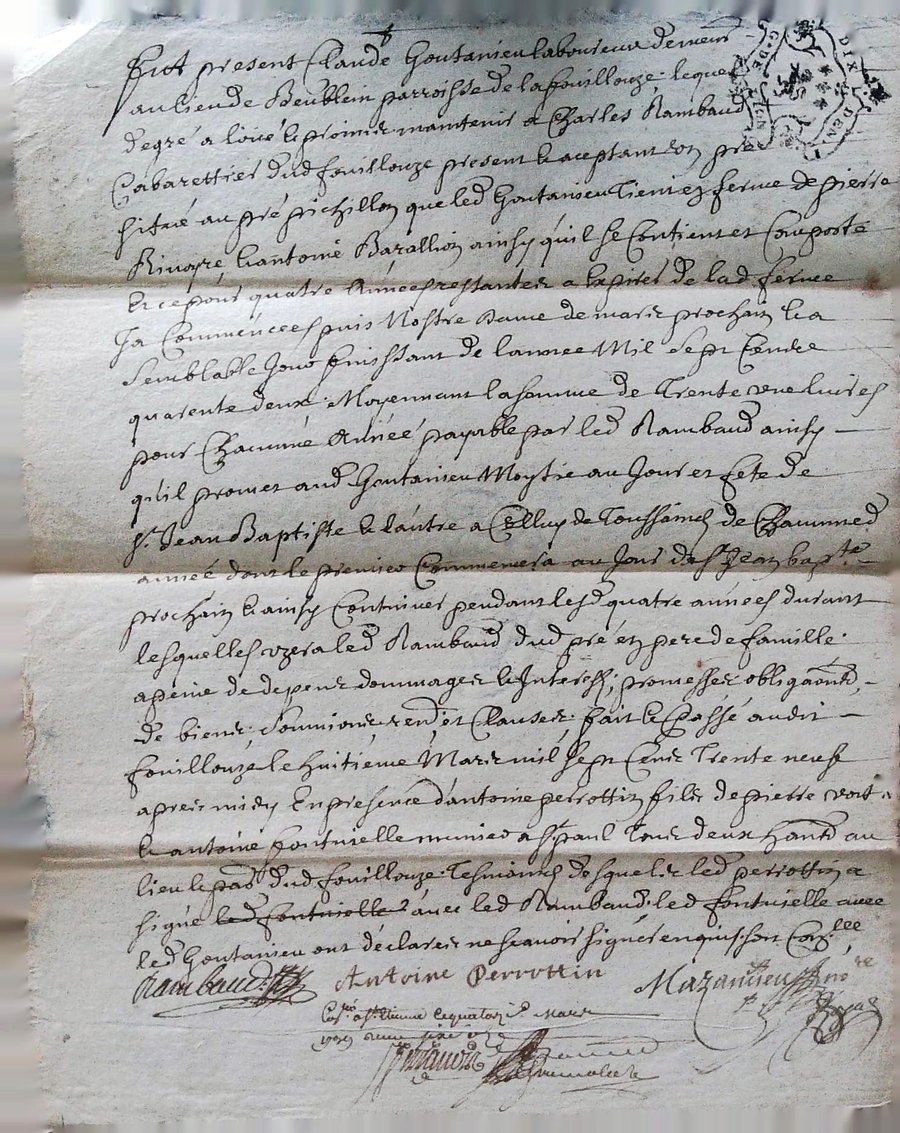 fut present Claude Goutanieu laboureur demeur
au lieu de Beublein parroisse de la fouillouze lequel
de gré a loué promis maintenir a Charles Rambaud
Cabarettier dud fouillouze present et aceptant un pré
situé au pré pichillon que led Goutanieu tient en ferme de pierre
et antoine Barallion ainsy qu'il se Contient et Comporte
et ce pour quatre Années restantes a Expirer de lad ferme
Ja Commencées puis Nostre dame de mars prochain et a
Semblable Jour finissant de lannee Mil Sept Cents
quarente deux. Moyennant la somme de Trente une livres
pour Chacune Année payable par led Rambaud ainsy
qu'il promet aud Goutanieu Moytié au Jour et fete de
st Jean Baptiste et lautre a Celluy de Toussaincts de Chacune d
année dont le premier Commencera au Jour de st Jean bapte
prochain et ainsy Continuer pendant lesd quatre années durant
lesquelles uzera led Rambaud dud pré en pere de famille
a peine de depens dommages et Interests, promesses obligaons
de biens, Soumions, renon et Clauses. fait et Passé audit
fouillouze le huitieme Mars mil sept Cents Trente neuf
apres midy En presence d'antoine perrottin fils de pierre
et antoine fontvielle a st paul Tous deux au
lieu dud fouillouze Tesmoins desquels led perrottin a
signé led fontvielle avec led Rambaud. led fontvielle avec
led Goutanieu ont déclarés ne scavoir signer enquis. son
Rambaud Antoine Perrottin Mazancieu nore
a st Etienne le quatorze Mars
1739